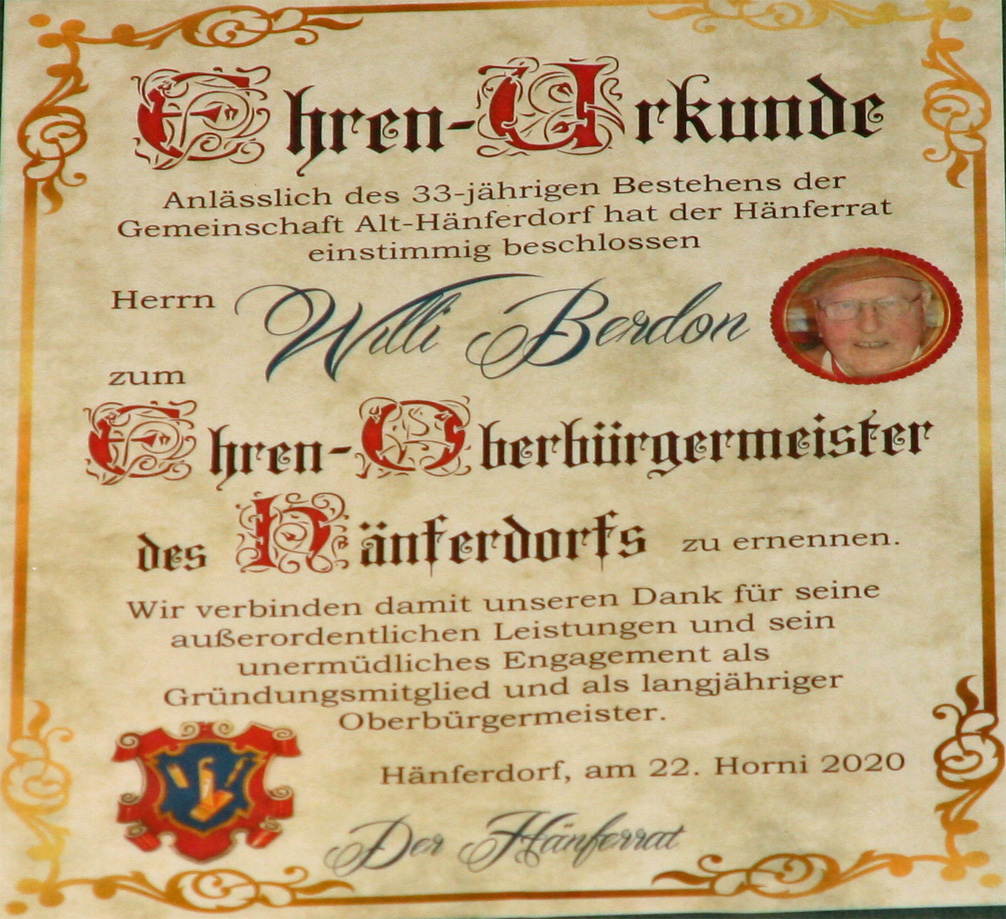 Ehren-Urkunde
Anlässlich des 33-jährigen Bestehens der
Gemeinschaft Alt-Hänferdorf hat der Hänferrat
einstimmig beschlossen
Herrn Willi Berdon
zum
Ehren-Oberbürgermeister
des Hänferdorfs zu ernennen.
Wir verbinden damit unseren Dank für seine
außerordentlichen Leistungen und sein
unermüdliches Engagement als
Gründungsmitglied und als langjähriger
Oberbürgermeister.
Hänferdorf, am 22. Horni 2020
Der Hänferrat